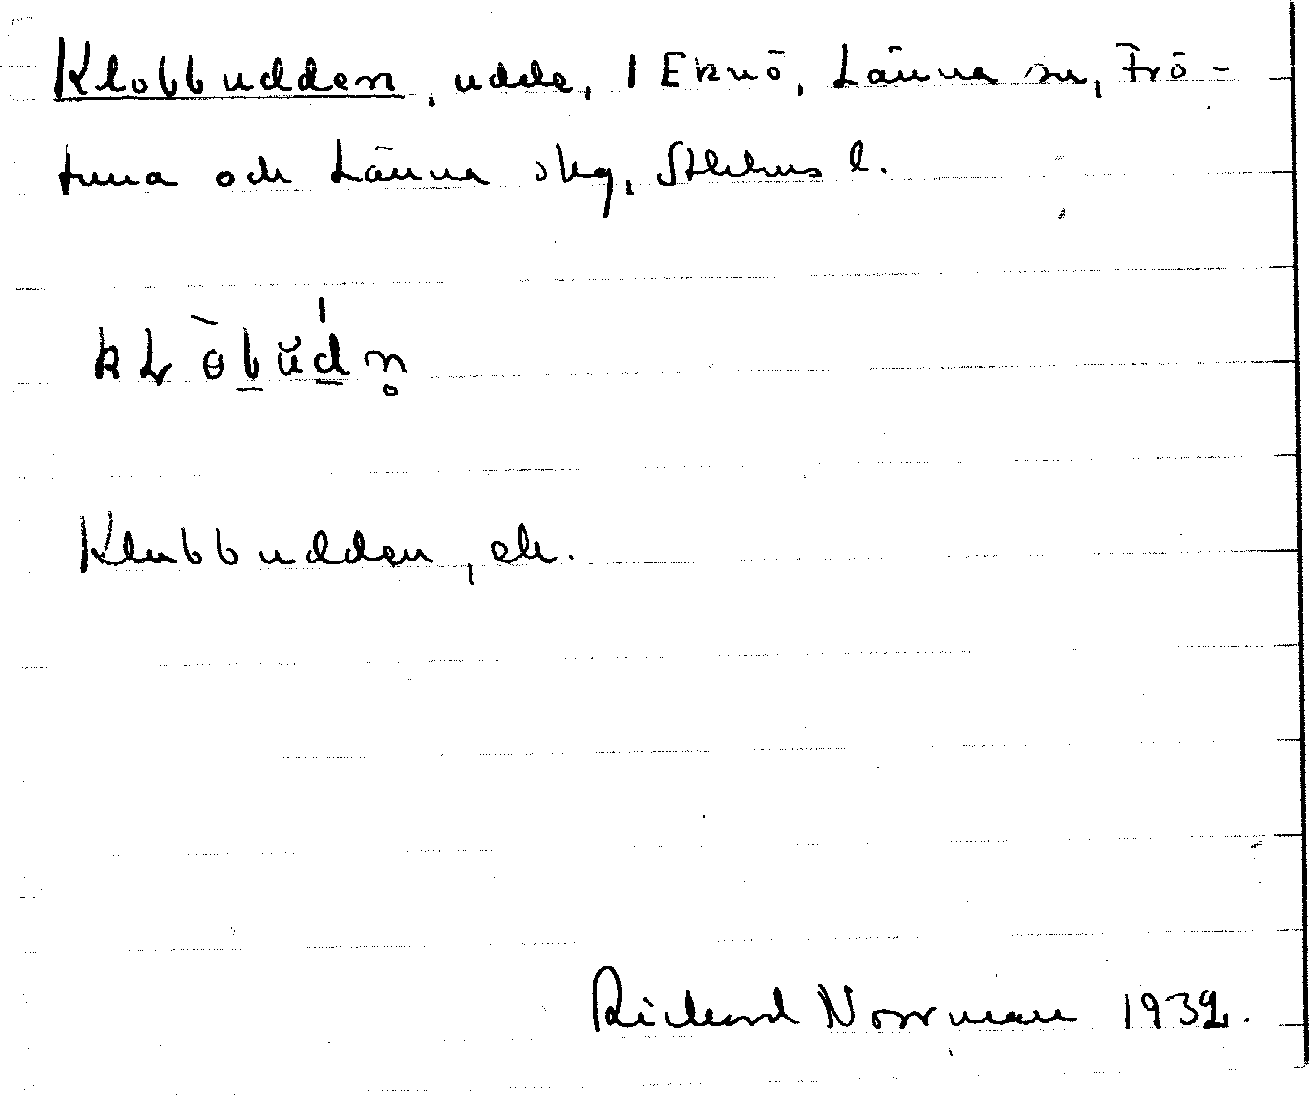 Klobbudden, udde, 1 Eknö, Länna sn, Frö-
tuna och Länna skg, Sthlms l.
kLòbu̇́dn̥
Klubbudden, ek.
Richard Norrman 1932.